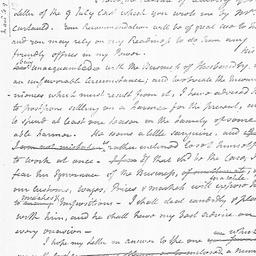 letter of the 9 July last which you wrote me by Mr.
Curland. Your Recommendation will be of great use to him
and you may rely on my Readiness to do him any
friendly office in my Power. His
being unacquainted with the Business of Husbandry is
an unfavorable Circumstance; and to obviate the Inconve-
niences which must result from it, I have advised him
to postpone settling on a Farm for the present, and
to spend at least one Season in the Family of some
able Farmer. He seems a little sanguine, and
rather inclined to set himself
to work at once - If that shd be the Case, I
fear his Ignorance of the Business, of
our Customs, Wages, Prices & Markets will expose him
to many Impositions - I shall deal candidly &
with him, and he shall have my best advice on
every occasion -
I hope my Letter in answer to the one